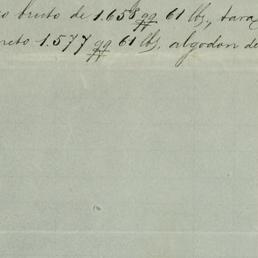 so bruto de 1.658 qq 61 lbs, tara
neto 1.577 qq 61 lbs, algodon de